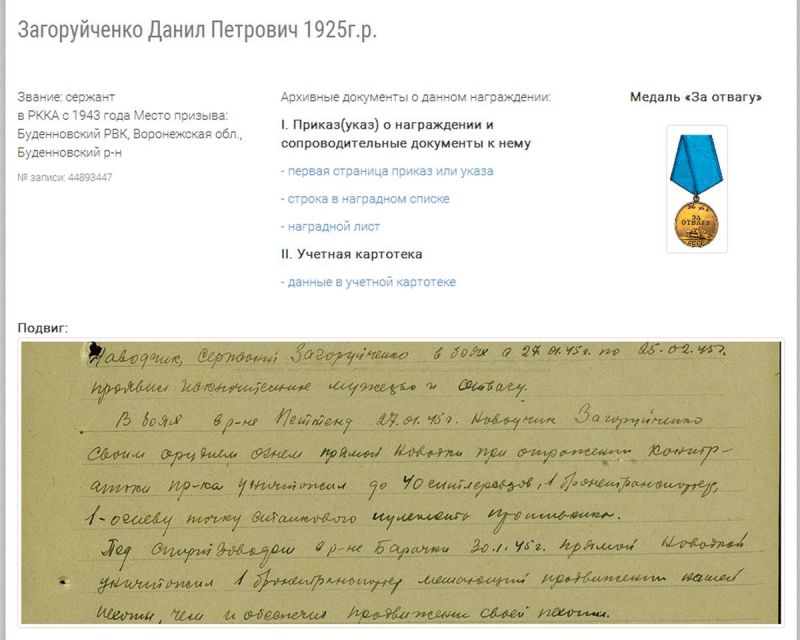 Загоруйченко Данил Петрович 1925г.р.
Звание: сержант
в РККА с 1943 года Место призыва:
Буденновский РВК, Воронежская обл.,
Буденновский р-н
№ записи: 44893447
Архивные документы о данном награждении:
I. Приказ(указ) о награждении и
сопроводительные документы к нему
- первая страница приказ или указа
- строка в наградном списке
- наградной лист
II. Учетная картотека
- данные в учетной картотеке
Медаль «За отвагу»
ЗА
ОТВАГУ
СССР
Подвиг:
Наводчик, сержант Загоруйченко в боях с 27.01.45г. по 25.02.45г.
проявил исключительное мужество и отвагу.
В боях в р-не 27.01.45г. наводчик Загоруйченко
своим орудием огнем прямой наводки при отражении контр-
атаки пр-ка уничтожил до 40 гитлеровцев, 1 бронетранспортер,
1-огневу точку станкового пулемета противника.
Под в р-не Барачки 30.1.45г. прямой наводкой
уничтожил 1 бронетранспортер мешающий продвижению нашей
пехоты, чем и обеспечил продвижение своей пехоты.